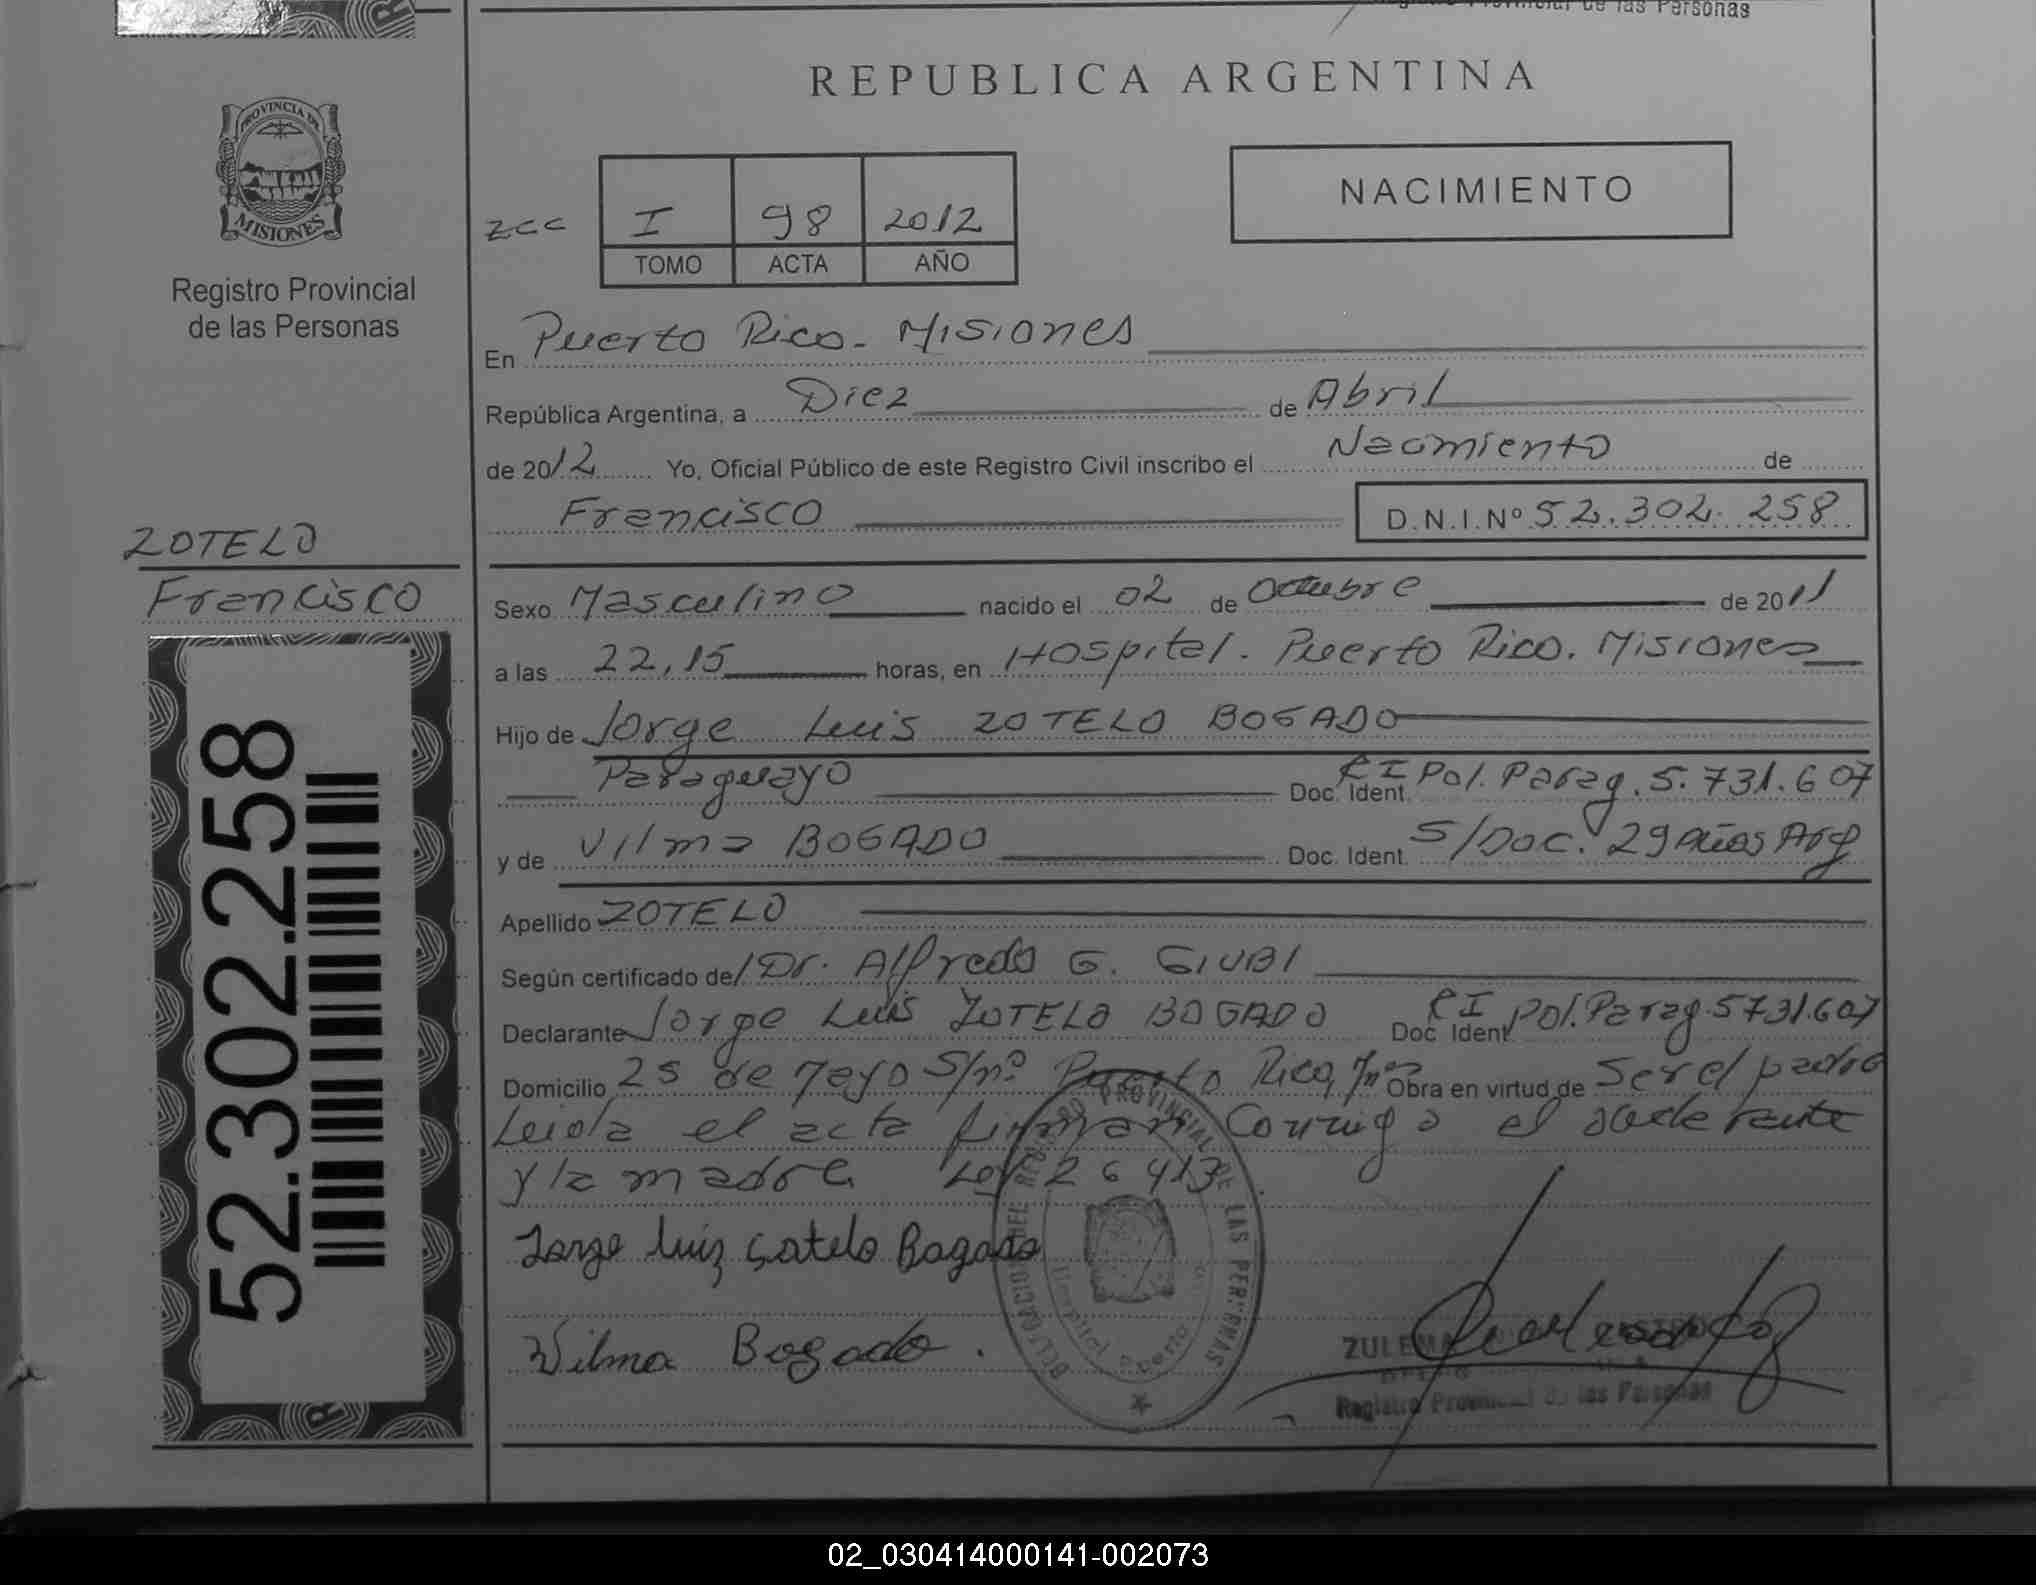 Registro Provincial de las Personas
REPUBLICA ARGENTINA
PROVINCIA DE
MISIONES
Registro Provincial
de las Personas
NACIMIENTO
zcc I 98 2012
TOMO ACTA AÑO
En Puerto Rico - Misiones
República Argentina, a Diez de Abril
de 2012 Yo, Oficial Público de este Registro Civil inscribo el Nacimiento de
Francisco D.N.I.Nº 52.302.258
ZOTELO
Francisco
52.302.258
Sexo Masculino nacido el 02 de Octubre de 2011
a las 22,15 horas, en Hospital. Puerto Rico. Misiones
Hijo de Jorge Luis ZOTELO BOGADO
Paraguayo Doc. Ident. CI Pol. Parag. 5.731.607
y de Vilma BOGADO Doc. Ident. S/Doc. 29 Años Arg
Apellido ZOTELO
Según certificado de/Dr. Alfredo G. GIUBI
Declarante Jorge Luis ZOTELO BOGADO Doc Ident CI Pol. Parag. 5731.607
Domicilio 25 de Mayo S/nº Puerto Rico, Mnes Obra en virtud de Ser el padre
Leida el acta firman Conmigo el declarante
y la madre. Ley 26413.
Jorge luiz Sotelo Bogado
Wilma Bogado.
DELEGACION DEL REGISTRO PROVINCIAL DE LAS PERSONAS
Hospital Puerto
ZULEMA
Registro Provincial de las Personas
02_030414000141-002073